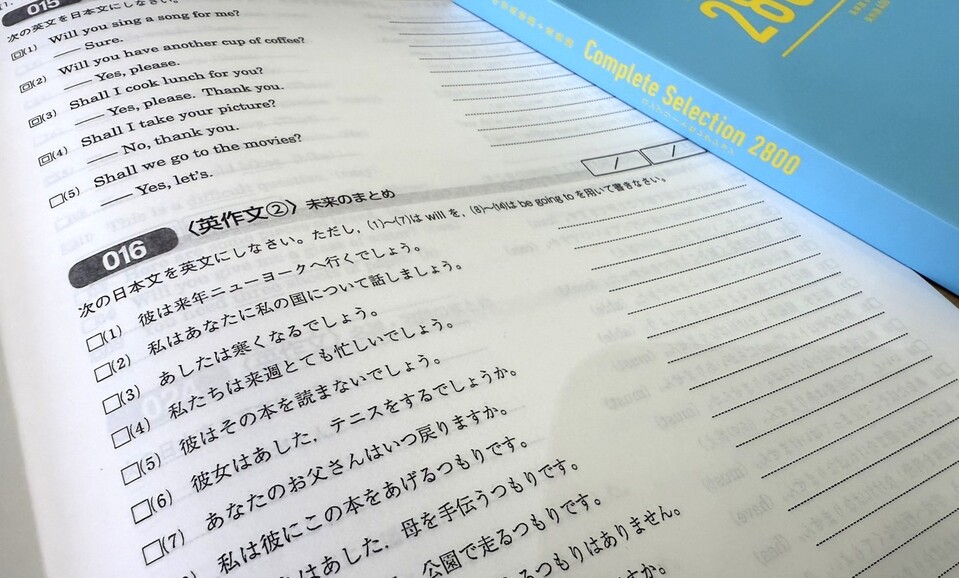 015
次の英文を日本文にしなさい。
(1) Will you sing a song for me?
— Sure.
(2) Will you have another cup of coffee?
— Yes, please.
(3) Shall I cook lunch for you?
— Yes, please. Thank you.
(4) Shall I take your picture?
— No, thank you.
(5) Shall we go to the movies?
— Yes, let's.
016 〈英作文②〉 未来のまとめ
次の日本文を英文にしなさい。ただし,(1)~(7)は will を,(8)~(14)は be going to を用いて書きなさい。
(1) 彼は来年ニューヨークへ行くでしょう。
(2) 私はあなたに私の国について話しましょう。
(3) あしたは寒くなるでしょう。
(4) 私たちは来週とても忙しいでしょう。
(5) 彼はその本を読まないでしょう。
(6) 彼女はあした,テニスをするでしょうか。
(7) あなたのお父さんはいつ戻りますか。
私は彼にこの本をあげるつもりです。
はあした,母を手伝うつもりです。
公園で走るつもりです。
るつもりはありません。
280
Complete Selection 2800